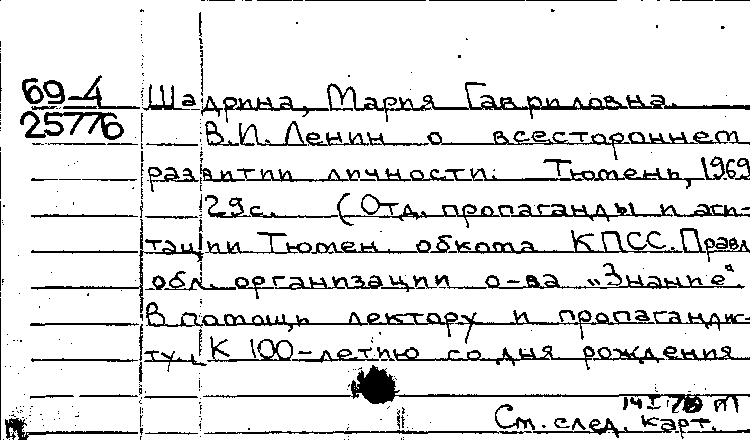 69-4 Шадрина, Мария Гавриловна.
25776 В.И. Ленин о всестороннем
развитии личности. Тюмень, 1969
29с. (Отд. пропаганды и аги-
тации Тюмен. обкома КПСС. Правл.
обл. организации о-ва „Знание".
В помощь лектору и пропагандис-
ту. К 100-летию со дня рождения
См. след. карт.